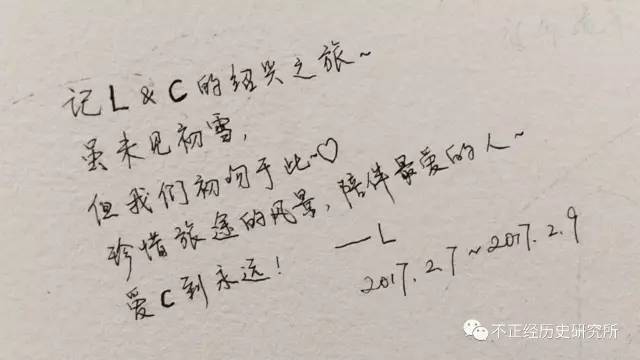 记L&C的绍兴之旅~
虽未见初雪,
但我们初吻于此~♡
珍惜旅途的风景,陪伴最爱的人~
爱C到永远!
——L
2017.2.7~2017.2.9
不正经历史研究所